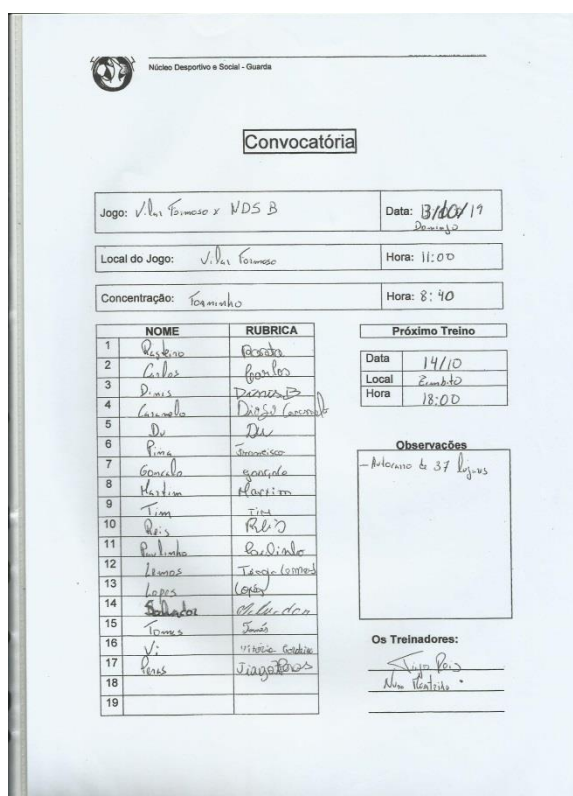 Núcleo Desportivo e Social - Guarda
Convocatória
Jogo: Vilar Formoso x NDS B
Data: 13/10/19
Domingo
Local do Jogo: Vilar Formoso
Hora: 11:00
Concentração: Torninho
Hora: 8:40
NOME RUBRICA
1
2 Carlos Carlos
3 Dinis Dinis B
4 Caramelo Diogo Caramelo
5 Du Du
6 Pina Francisco
7 Gonçalo Gonçalo
8 Martim Martim
9 Tim Tim
10 Reis Reis
11 Paulinho Paulinho
12 Lemos Tiago Lemos
13 Lopes Lopes
14 Salvador
15 Tomás Tomás
16 Vi Vitória
17 Peras Tiago Peras
18
19
Próximo Treino
Data 14/10
Local Zambito
Hora 18:00
Observações
- Autocarro de 37 lugares
Os Treinadores:
Tiago Reis
Nuno